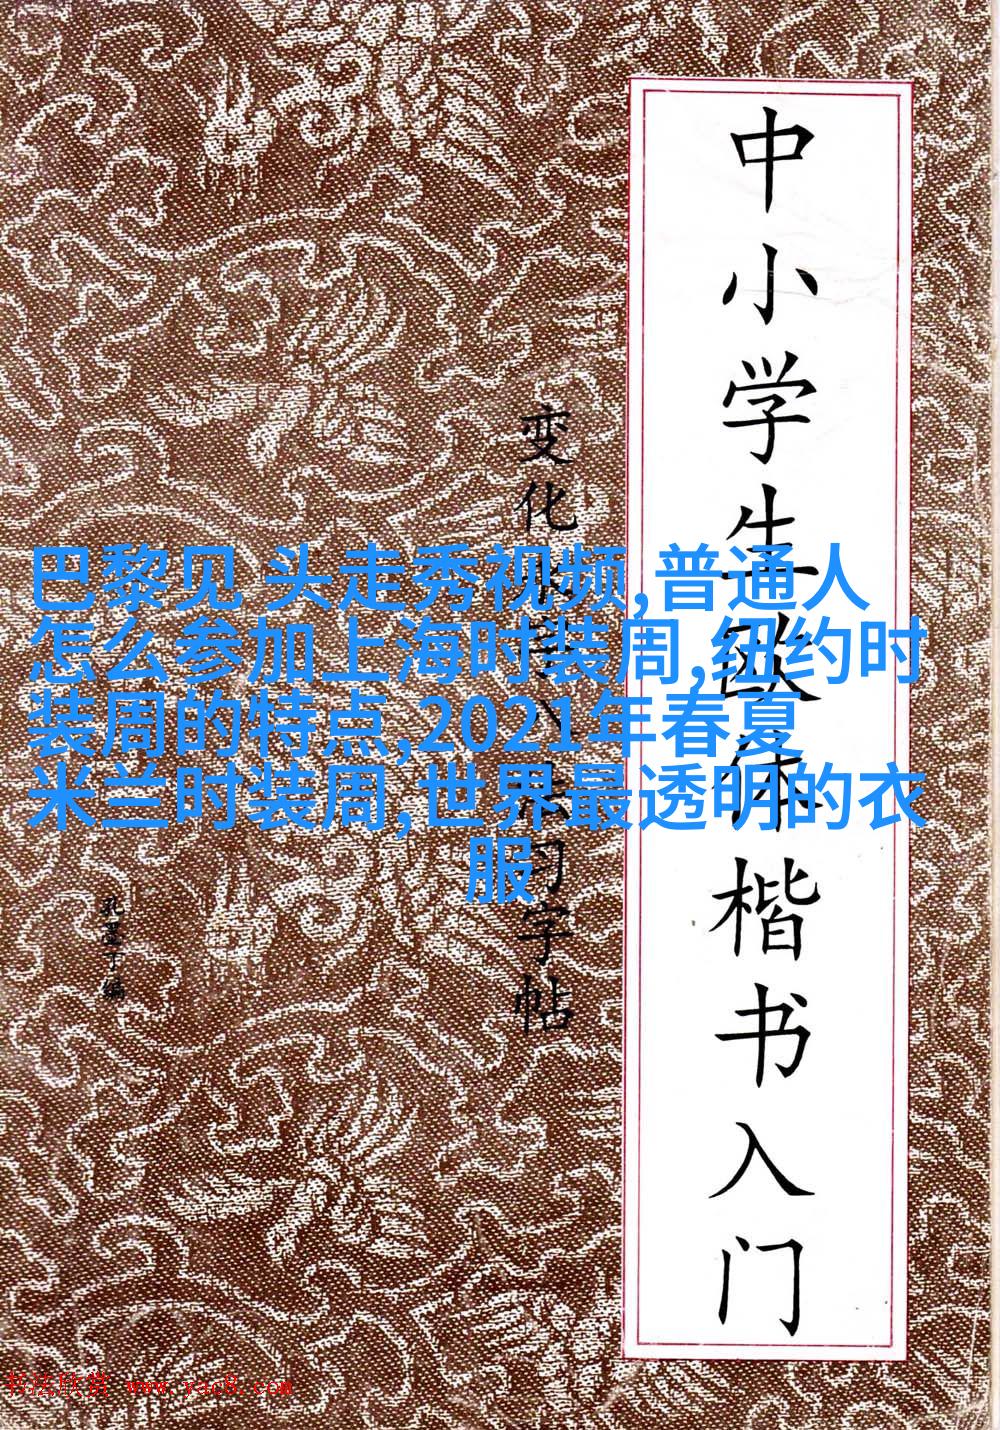 中小学生欧体楷书入门
变化
习字帖
孔墨丁编
巴黎见 头走秀视频,普通人
怎么参加上海时装周,纽约时
装周的特点,2021年春夏
米兰时装周,世界最透明的衣
服
书法欣赏 www.yac8.com